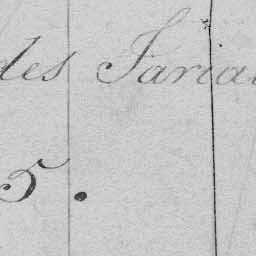 des Faria
5.